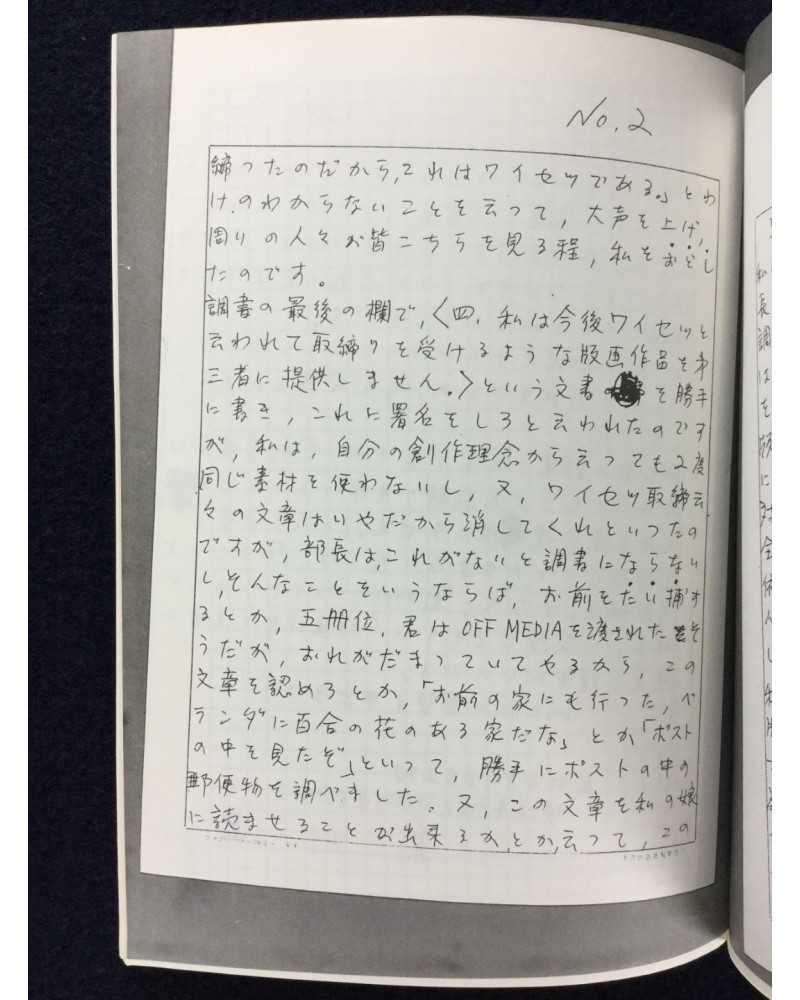 No. 2
締つたのだから,これはワイセツである。」とわ
け.のわからないことを云つて, 大声を上げ,
周りの人々が皆こちらを見る程, 私をおどし
たのです。
調書の最後の欄で,〈四. 私は今後ワイセツと
云われて取締りを受けるような版画作品を才
三者に提供しません.〉という文書を勝手
に書き, これに署名をしろと云われたのです
が, 私は, 自分の創作理念から云つても2度
同じ素材を使わないし, 又, ワイセツ取締云
々の文章はいやだから消してくれといつたの
ですが, 部長は,これがないと調書にならない
し,そんなことをいうならば, お前をたい捕す
るとか, 五冊位, 君は OFF MEDIA を渡されたそ
うだが, おれがだまつていてやるから, この
文章を認めろとか,「お前の家にも行つた, ベ
ランダに百合の花のある家だな」とか「ポスト
の中を見たぞ」といつて, 勝手にポストの中の
郵便物を調べました. 又, この文章を私の嫁
に読ませることが出来るか,とか,云つて, この
私
長
調
は
を